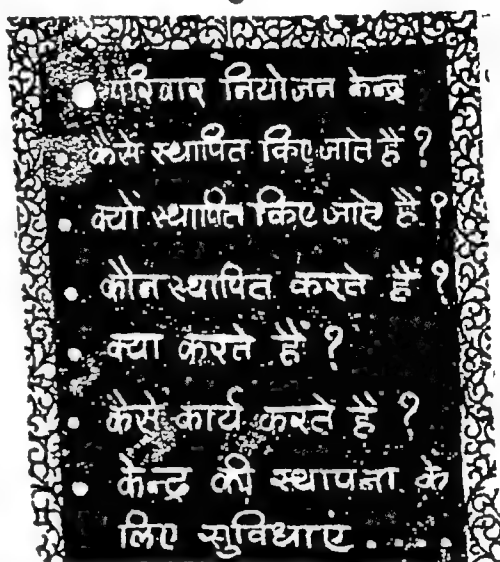 • परिवार नियोजन केन्द्र
• कैसे स्थापित किए जाते हैं ?
• क्यों स्थापित किए जाते हैं ?
• कौन स्थापित करते हैं ?
• क्या करते हैं ?
• कैसे कार्य करते हैं ?
• केन्द्र की स्थापना के
लिए सुविधाएं